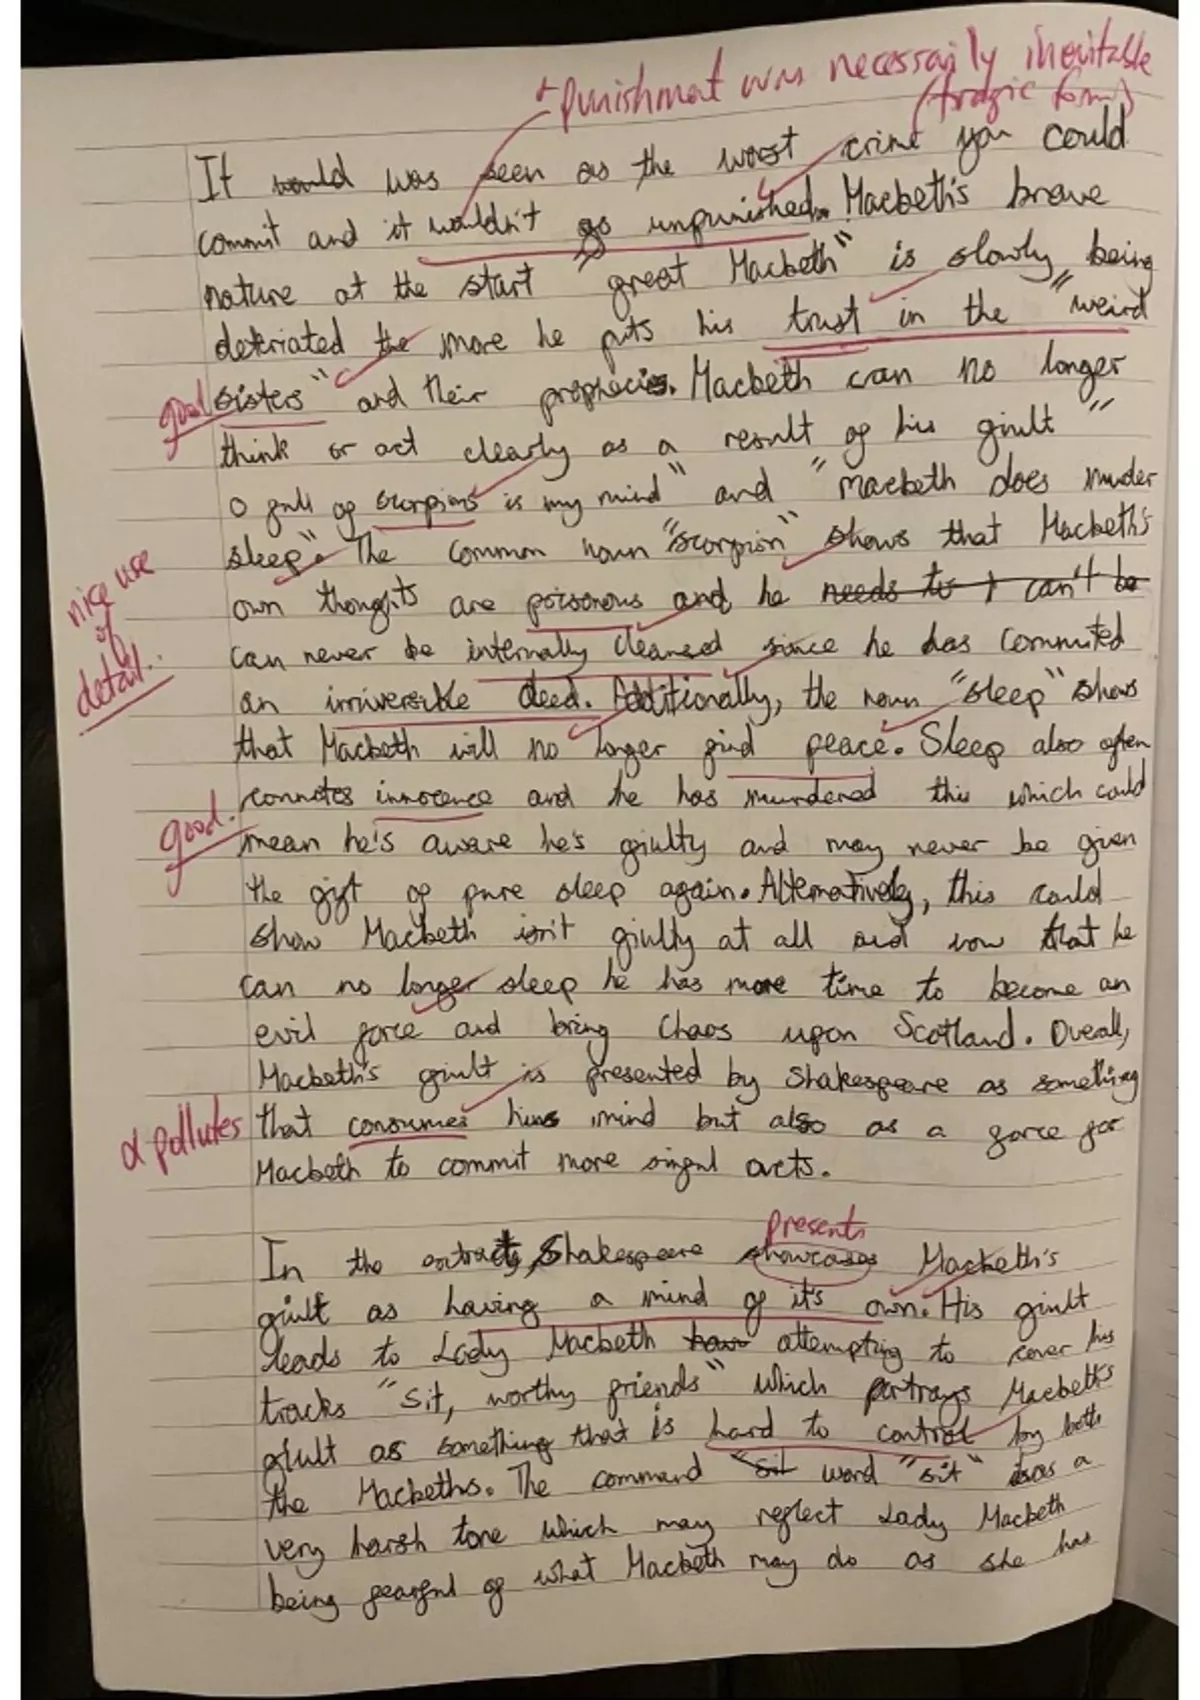 + punishment was necessarily inevitable
(tragic form)
It would was seen as the worst crime you could
commit and it wouldn't go unpunished. Macbeth's brave
nature at the start "great Macbeth" is slowly being
deteriated the more he puts his trust in the "weird
good sisters" and their prophecies. Macbeth can no longer
think or act clearly as a result of his giult "
O full of scorpions is my mind" and "Macbeth does murder
sleep". The common noun "scorpion" shows that Macbeth's
nice use
of
detail..
own thoughts are poisonous and he needs to can't be
can never be internally cleansed since he has commited
an irriversible deed. Additionally, the noun "sleep" shows
that Macbeth will no longer find peace. Sleep also often
connotes innocence and he has murdered this which could
good. mean he's aware he's giulty and may never be given
the gift of pure sleep again. Alternatively, this could
show Macbeth isn't giulty at all and now that he
can no longer sleep he has more time to become an
evil force and bring chaos upon Scotland. Overall,
Macbeth's giult is presented by Shakespeare as something
& pollutes that consumes his mind but also as a force for
Macbeth to commit more sinful acts.
presents
In the extract, Shakespeare showcases Macbeth's
giult as having a mind of it's own. His giult
leads to Lady Macbeth attempting to cover his
tracks "Sit, worthy friends" which portrays Macbeth's
giult as something that is hard to control by both
the Macbeths. The command "sit word "sit" has a
very harsh tone which may reflect Lady Macbeth
being fearful of what Macbeth may do as she has